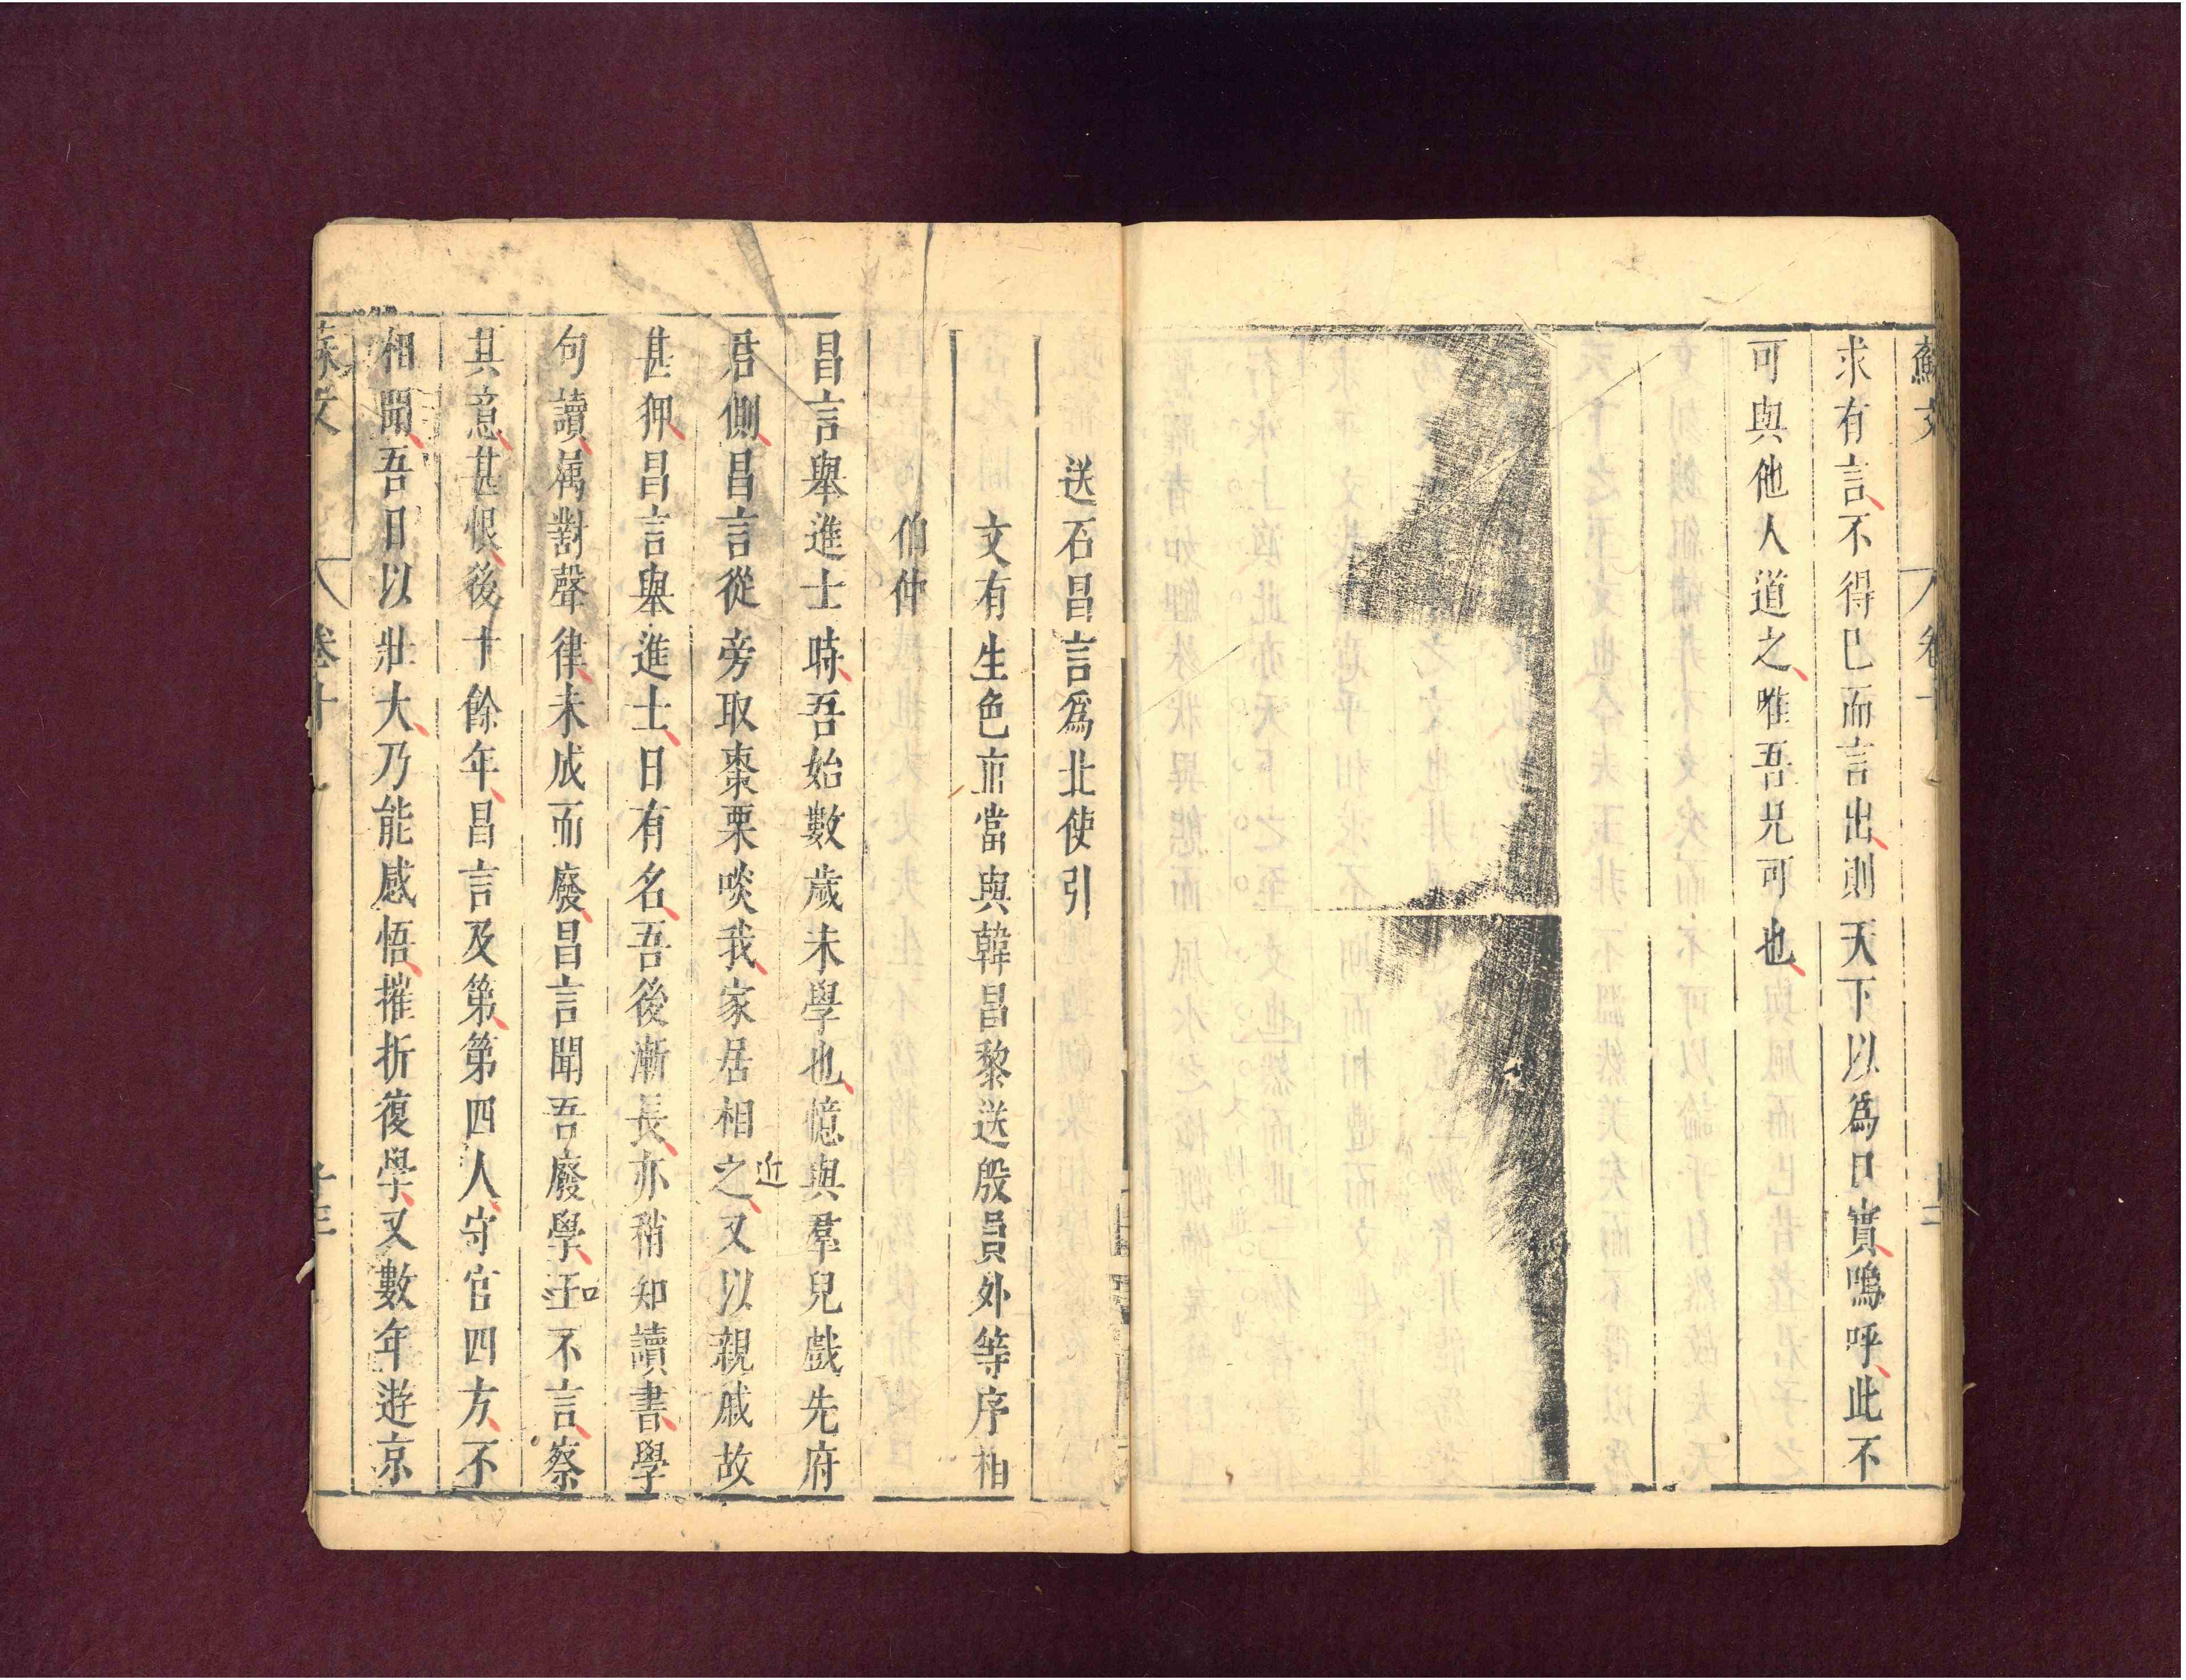 蘇文 卷十
求有言不得已而言出則天下以為口實嗚呼此不
可與他人道之唯吾兄可也
送石昌言為北使引
文有生色直當與韓昌黎送殷員外等序相
伯仲
昌言舉進士時吾始數歲未學也憶與羣兒戲先府
君側昌言從旁取棗栗啖我家居相之又以親戚故
近
甚狎昌言舉進士日有名吾後漸長亦稍知讀書學
句讀属對聲律未成而廢昌言聞吾廢學𨿽不言察
其意甚恨後十餘年昌言及第第四人守官四方不
相聞吾日以壯大乃能感悟摧折復學又數年遊京
蘇文 卷十 十三